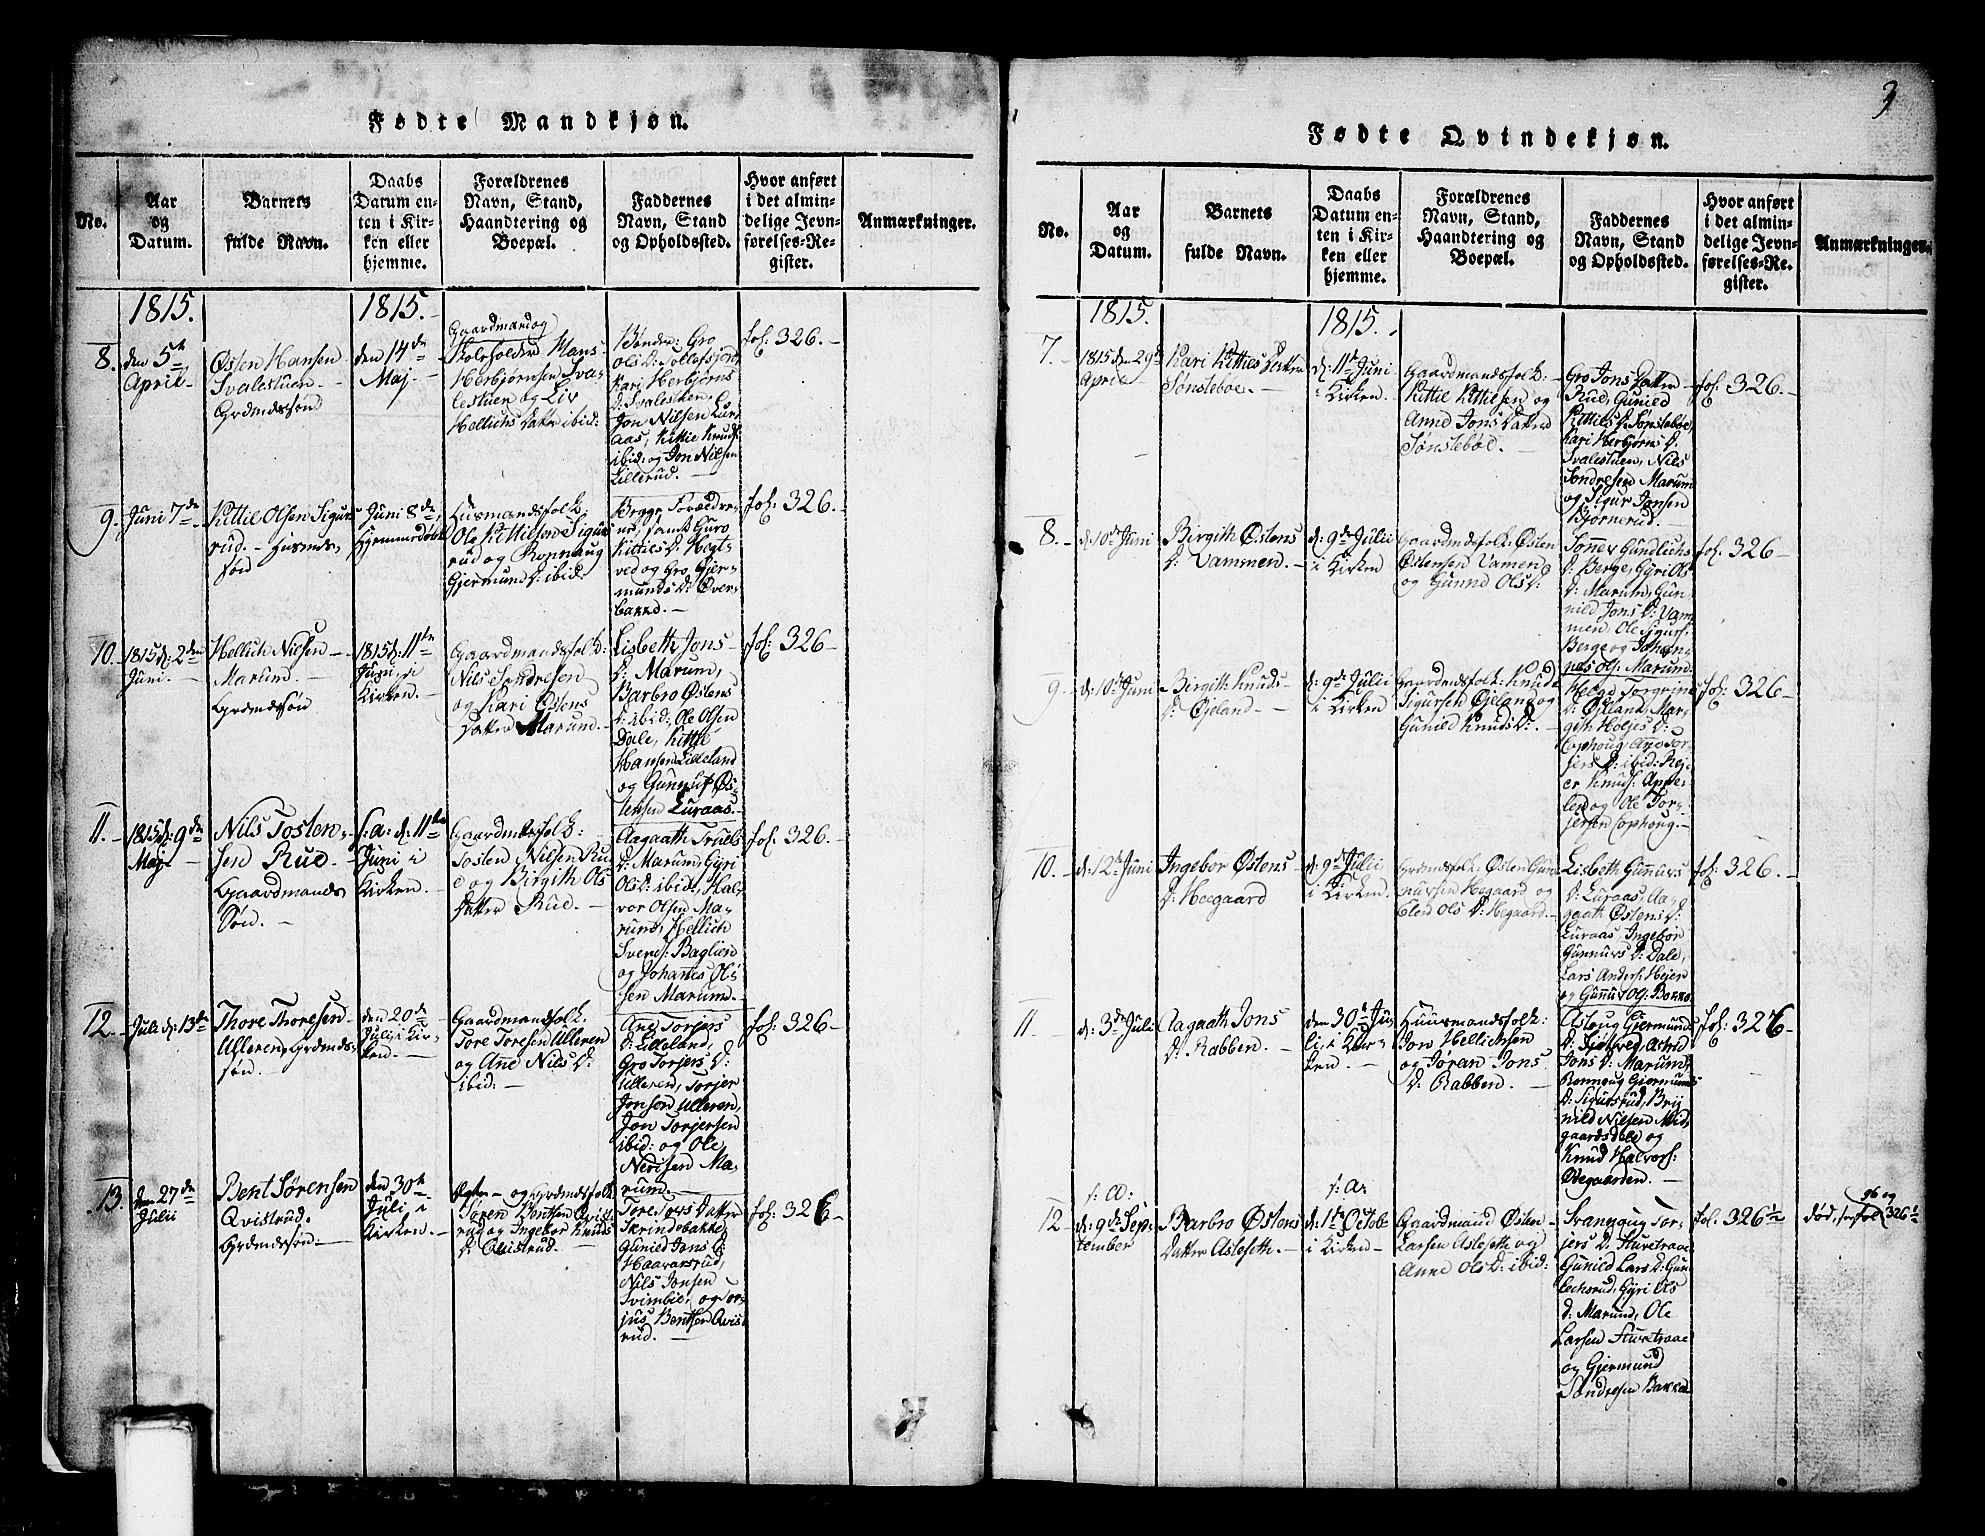 Fødte Mandkjøn.
No.
Aar
og
Datum.
Barnets
fulde Navn.
Daabs
Datum en-
ten i Kir-
ken eller
hjemme.
Forældrenes
Navn, Stand,
Haandtering og
Boepæl.
Faddernes
Navn, Stand
og Opholdssted.
Hvor anført
i det almin-
delige Jevn-
førelses-Re-
gister.
Anmærkninger.
1815.
1815.
8.
den 5te
April
Østen Hansen
Svalestuen
Grdmdssønd
den 14de
Maj.
Gaardmand og
Skoleholder Hans
Herbjørnsen Sva-
lestuen og Liv
Hellichs Datter ibid:
Bønder: Gro
Ols D:
Kari Herbjørns
D: Svalestuen,
Jon Nilsen Lur-
aas, Kittil Knuds:
ibid: og Jon Nilsen
Lillerud.
fol: 326.
9.
Juni 7de
Kittil Olsen Sigurs
rud. Husmds
søn
Juni 8de,
Hjemmedøbt
Huusmandsfolk:
Ole Kittilsen Sigurs
rud og Ronnaug
Gjermund D: ibid:
Begge Forældre-
ne, samt Guro
Kittils D: Hegt-
ved og Gro Gjer-
munds D: Over-
bakke.
fol: 326.
10.
1815 d: 2den
Juni.
Hellich Nilsen
Marum.
Grdmdssøn
1815 d: 11te
Juni, i
Kirken.
Gaardmandsfolk:
Nils Sondresen
og Kari Østens
Datter Marum.
Lisbeth Jons
D: Marum,
Barbro Østens
D: ibid: Ole Olsen
Dale, Kittil
Hansen Lilleland
og Gunnuf Øs-
tensen Luraas.
fol: 326
11.
1815 d: 9de
Maj
Nils Tosten-
sen Rue.
Gaardmands
Søn.
s: a: d: 11te
Juni i
Kirken.
Gaardmdsfolk:
Tosten Nilsen Ru
e og Birgith Ols
Datter Rue.
Aagaath Truels
D: Marum, Gyri
Ols D: ibid, Hal-
vor Olsen Ma-
rum, Hellich
Svends: Baglien
og Johannes Ol-
sen Marum.
fol: 326.
12.
Juli d: 13de
Thore Thoresen
Ulleren, Grdmds-
søn.
den 20de
Juli, i Kir-
ken.
Gaardmandsfolk:
Tore Toresen Ulleren
og Ane Nils D:
ibid:
Ane Torjers
D: Lilleland,
Gro Torjers D:
Ulleren, Torjer
Jonsen Ulleren,
Jon Torjersen
ibid: og Ole
Nerisen Ma-
rum.
fol: 326
13.
den 27de
Julii
Bent Sørensen
Qvistrud.
Grdmdssøn.
den 30te
Juli, i
Kirken.
Ægte- og Grdmdsfolk
Søren Bentsen Qvist
rud og Ingebor Knuds
D: Qvistrud.
Tore Datter
Skrindebakke,
Gunild Jons D:
Haavarsrud,
Nils Jonsen
Svimbil, og Tor-
jus Bentsen Qvist
rud.
fol: 326
3
Fødte Qvindekjøn.
No.
Aar
og
Datum.
Barnets
fulde Navn.
Daabs
Datum en-
ten i Kir-
ken eller
hjemme.
Forældrenes
Navn, Stand,
Haandtering og
Boepæl.
Faddernes
Navn, Stand
og Opholdssted.
Hvor anført
i det almin-
delige Jevn-
førelses-Re-
gister.
Anmærkninger.
1815.
1815.
7.
1815 den 29de
April
Kari Kittils Datter
Sønsteboe.
d: 11te Juni
i Kirken.
Gaardmandsfolk:
Kittil Kittilsen og
Anne Jons Datter
Sønstebøe.
Gro Jons Datter
Rue, Gunild
Kittils D: Sønsteboe,
Kari Herbjørns D:
Svalestuen, Nils
Sondresen Marum
og Sigur Jonsen
Bjørnerud.
fol: 326.
8.
d: 10de Juni
Birgith Østens
D: Vammen.
d: 9de Julii
i Kirken
Gaardmdsfolk: Østen
Østensen Vamen
og Gunne Ols D:
Tonner Gundlichs
D: Berge, Gyri Ols
D: Marum, Gun-
nild Jons D: Vam
men, Ole Sigurs:
Berge og Johan-
nes Ols: Marum.
fol: 326
9.
d: 10de Juni
Birgith Knuds
D: Øjeland.
d: 9de Julii
i Kirken
Gaardmdsfolk: Knud
Sigursen Øjeland og
Gunild Knuds D:
Helge Torgrims
D: Øjeland, Mar-
gith Holjes D:
Cophoug, Ane Tor-
jers D: ibid:
Knuds:
og Ole Tor-
jersen Cophoug.
fol: 326.
10.
d: 12te Juni
Ingebor Østens
D: Hoegaard
d: 9de Julii
i Kirken.
Grdmdsfolk: Østen Gun
nufsen Hegaard og
Elen Ols D: Hegaard.
Lisbeth Gunufs
D: Luraas, Aa-
gaath Østens D:
Luraas, Ingebor
Gunnufs D: Dale,
Lars Anders:
og Gunnuf Ols: Bakke
fol: 326.
11.
d: 3de Juli
Aagaath Jons
D: Rabben.
den 30te Ju-
li, i Kir-
ken.
Huusmandsfolk:
Jon Hellichsen
og Jøran Jons
D: Rabben.
Aslaug Gjermunds
D: Astrid
Jons D: Marum,
Ronnoug Gjermunds
D: Sigursrud, Bry
nild Nilsen Mid
gaardsdale og
Knud Halvors:
Øegaarden.
fol: 326
12
s: a:
d: 9de Sep-
tember
Barbro Østens
Datter Asleseth.
s: a:
d: 1te Octobe
i Kirken
Gaardmand Østen
Larsen Aslesethe og
Anne Ols D: ibid:
Svanaug Tor-
jers D: Sturetraae
Gunild Lars D: Gun-
lechsrud, Gyri Ols
D: Marum, Ole
Larsen Sturetraae
og Gjermund
Sondresen Bakke.
fol: 326
død,